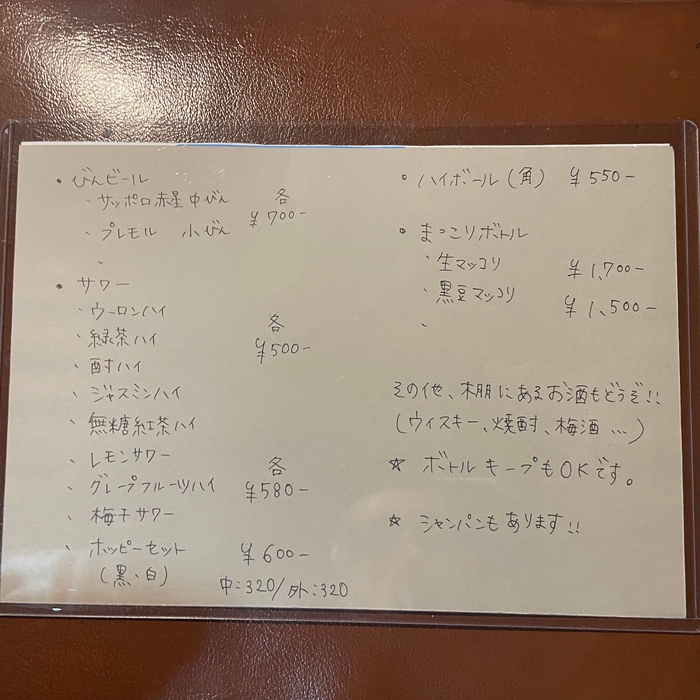 ・びんビール
・サッポロ赤星中びん 各
・プレモル 小びん ¥700-
・サワー
・ウーロンハイ
・緑茶ハイ 各
・酎ハイ ¥500-
・ジャスミンハイ
・無糖紅茶ハイ
・レモンサワー 各
・グレープフルーツハイ ¥580-
・梅干サワー
・ホッピーセット ¥600-
(黒・白) 中:320/外:320
・ハイボール(角) ¥550-
・まっこりボトル
・生マッコリ ¥1,700-
・黒豆マッコリ ¥1,500-
その他、棚にあるお酒もどうぞ!!
(ウィスキー、焼酎、梅酒…)
☆ ボトルキープもOKです。
☆ シャンパンもあります!!